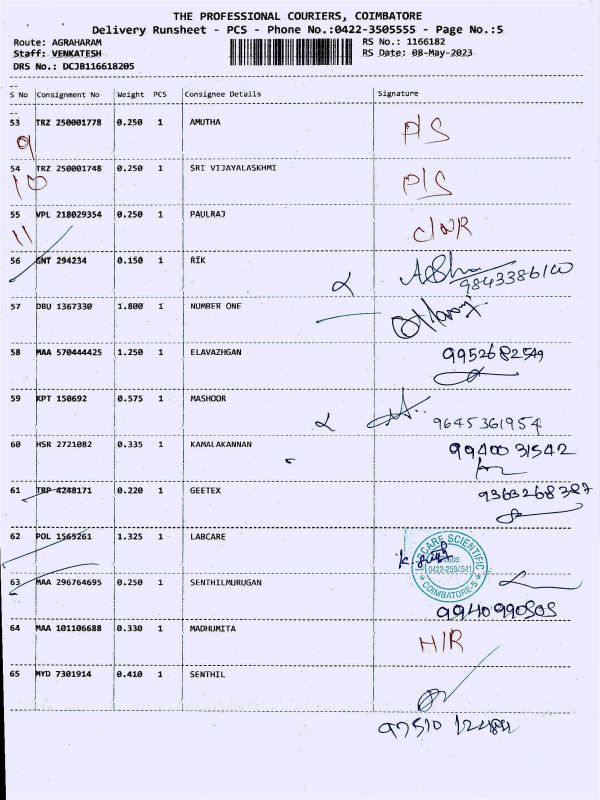 THE PROFESSIONAL COURIERS, COIMBATORE
Delivery Runsheet - PCS - Phone No.:0422-3505555 - Page No.:5
Route: AGRAHARAM RS No.: 1166182
Staff: VENKATESH RS Date: 08-May-2023
DRS No.: DCJB116618205
S No Consignment No Weight PCS Consignee Details Signature
53 TRZ 250001778 0.250 1 AMUTHA P/S
9
54 TRZ 250001748 0.250 1 SRI VIJAYALASKHMI P/S
10
55 VPL 218029354 0.250 1 PAULRAJ C/NR
11
56 SNT 294234 0.150 1 RIK Asha
9843386100
57 DBU 1367330 1.800 1 NUMBER ONE
58 MAA 570444425 1.250 1 ELAVAZHGAN 9952682549
59 KPT 150692 0.575 1 MASHOOR
9645361954
60 HSR 2721082 0.335 1 KAMALAKANNAN 9940031542
61 TRP 4248171 0.220 1 GEETEX 9363268387
62 POL 1565261 1.325 1 LABCARE
LABCARE SCIENTIFIC
PHONE:
0422-2594541
COIMBATORE-5
63 MAA 296764695 0.250 1 SENTHILMURUGAN
9940990505
64 MAA 101106688 0.330 1 MADHUMITA H/R
65 MYD 7301914 0.410 1 SENTHIL